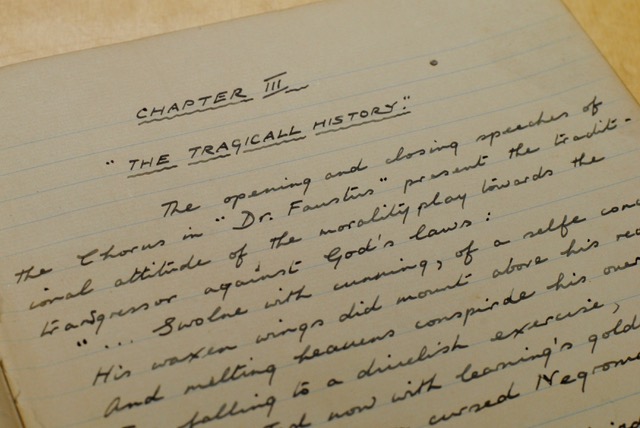 CHAPTER III
"THE TRAGICALL HISTORY."
The opening and closing speeches of
the Chorus in "Dr. Faustus" present the tradit-
ional attitude of the morality play towards the
transgressor against God's laws:
"... Swolne with cunning, of a selfe conc
His waxen wings did mount above his rea
And melting heavens conspirde his over
falling to a divelish exercise,
now with learning's gold
cursed Negrom